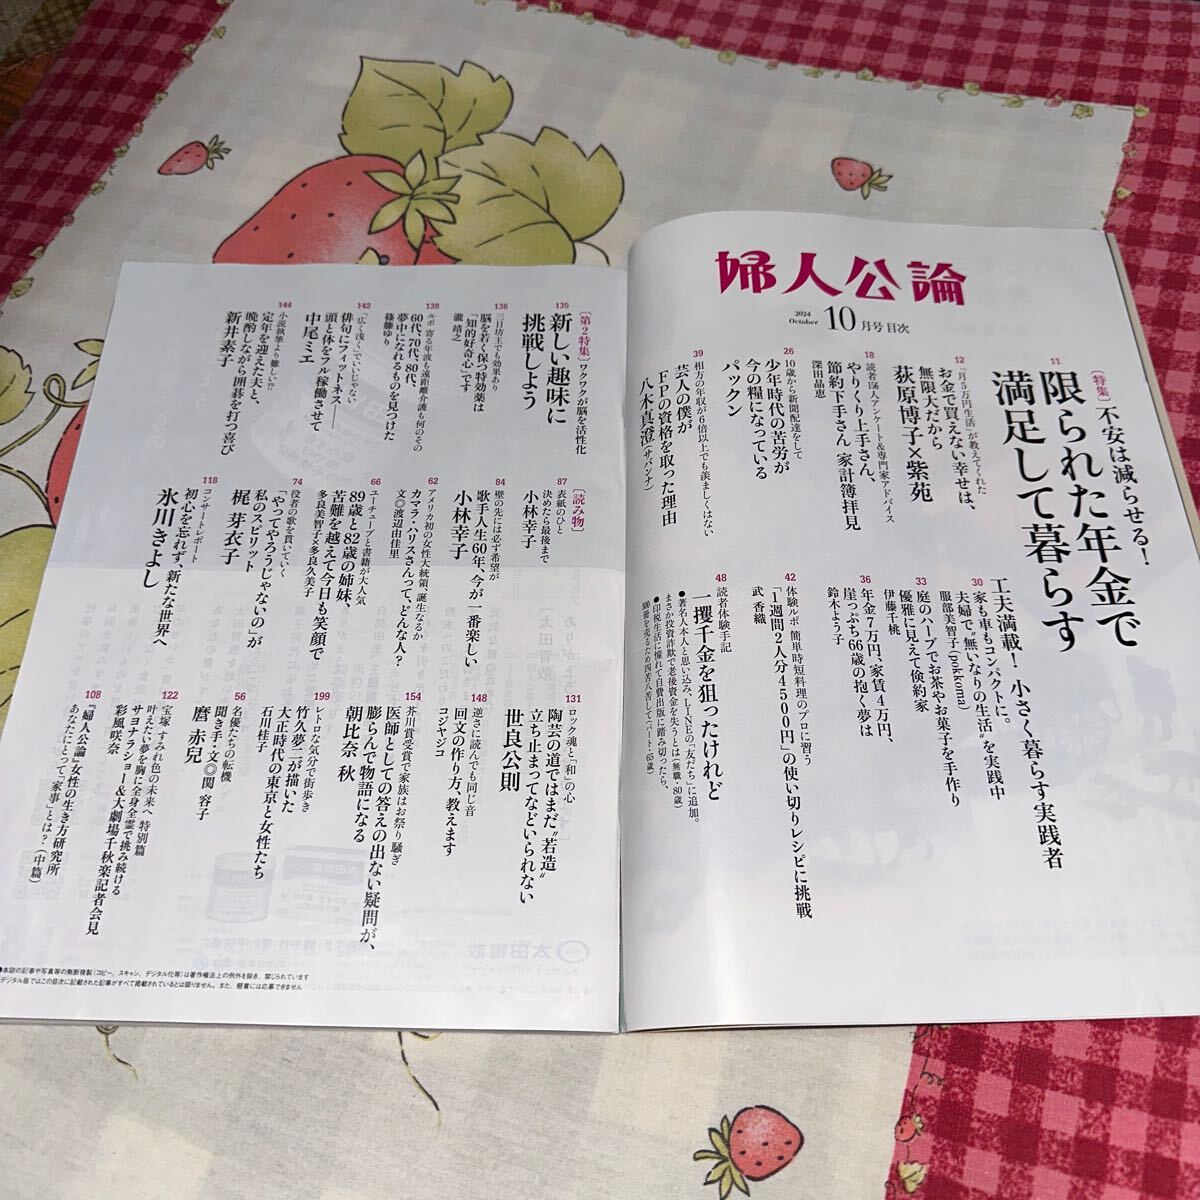 婦人公論
2024
October
10月号目次
11
[特集]不安は減らせる!
限られた年金で
満足して暮らす
12
“月5万円生活”が教えてくれた
お金で買えない幸せは、
無限大だから
荻原博子×紫苑
18
読者156人アンケート&専門家アドバイス
やりくり上手さん、
節約下手さん 家計簿拝見
深田晶恵
26
10歳から新聞配達をして
少年時代の苦労が
今の糧になっている
パックン
39
相方の年収が6倍以上でも羨ましくはない
芸人の僕が
FPの資格を取った理由
八木真澄(サバンナ)
工夫満載! 小さく暮らす実践者
30
家も車もコンパクトに。
夫婦で“無いなりの生活”を実践中
服部美智子(pokkoma)
33
庭のハーブでお茶やお菓子を手作り
優雅に見えて倹約家
伊藤千桃
36
年金7万円、家賃4万円、
崖っぷち66歳の抱く夢は
鈴木よう子
42
体験ルポ 簡単時短料理のプロに習う
「1週間2人分4500円」の使い切りレシピに挑戦
武 香織
48
読者体験手記
一攫千金を狙ったけれど
●著名人本人と思い込み、LINEの“友だち”に追加。
まさか投資詐欺で老後資金を失うとは(無職・80歳)
●印税生活に憧れて自費出版に踏み切ったら、
300冊を売るため四苦八苦して(パート・65歳)
135
[第2特集]ワクワクが脳を活性化
新しい趣味に
挑戦しよう
136
三日坊主でも効果あり
脳を若く保つ特効薬は
「知的好奇心」です
瀧 靖之
138
ルポ 寄る年波も遠距離介護も何のその
60代、70代、80代、
夢中になれるものを見つけた
篠藤ゆり
142
「広く浅く」でいいじゃない
俳句にフィットネス——
頭と体をフル稼働させて
中尾ミエ
144
小説執筆より難しい!?
定年を迎えた夫と、
晩酌しながら囲碁を打つ喜び
新井素子
[読み物]
87
表紙のひと
決めたら最後まで
小林幸子
84
壁の先には必ず希望が
歌手人生60年、今が一番楽しい
小林幸子
62
アメリカ初の女性大統領、誕生なるか
カマラ・ハリスさんって、どんな人?
文◎渡辺由佳里
66
ユーチューブと書籍が大人気
89歳と82歳の姉妹、
苦難を越えて今日も笑顔で
多良美智子×多良久美子
74
役者の歌を貫いていく
「やってやろうじゃないの」が
私のスピリット
梶 芽衣子
118
コンサートレポート
初心を忘れず、新たな世界へ
氷川きよし
131
ロック魂と「和」の心
陶芸の道ではまだ“若造”
立ち止まってなどいられない
世良公則
148
逆さに読んでも同じ音
回文の作り方、教えます
コジヤジコ
154
芥川賞受賞で家族はお祭り騒ぎ
医師としての答えの出ない疑問が、
膨らんで物語になる
朝比奈 秋
199
レトロな気分で街歩き
竹久夢二が描いた
大正時代の東京と女性たち
石川桂子
56
名優たちの転機
麿 赤兒
聞き手・文◎関 容子
122
宝塚 すみれ色の未来へ 特別篇
叶えたい夢を胸に全身全霊で挑み続ける
サヨナラショー&大劇場千秋楽記者会見
彩風咲奈
108
『婦人公論』女性の生き方研究所
あなたにとって「家事」とは?(中篇)
●本誌の記事や写真等の無断複製(コピー、スキャン、デジタル化等)は著作権法上の例外を除き、禁じられています
デジタル版ではこの目次に記載された記事がすべて掲載されているとは限りません。また、懸賞には応募できません